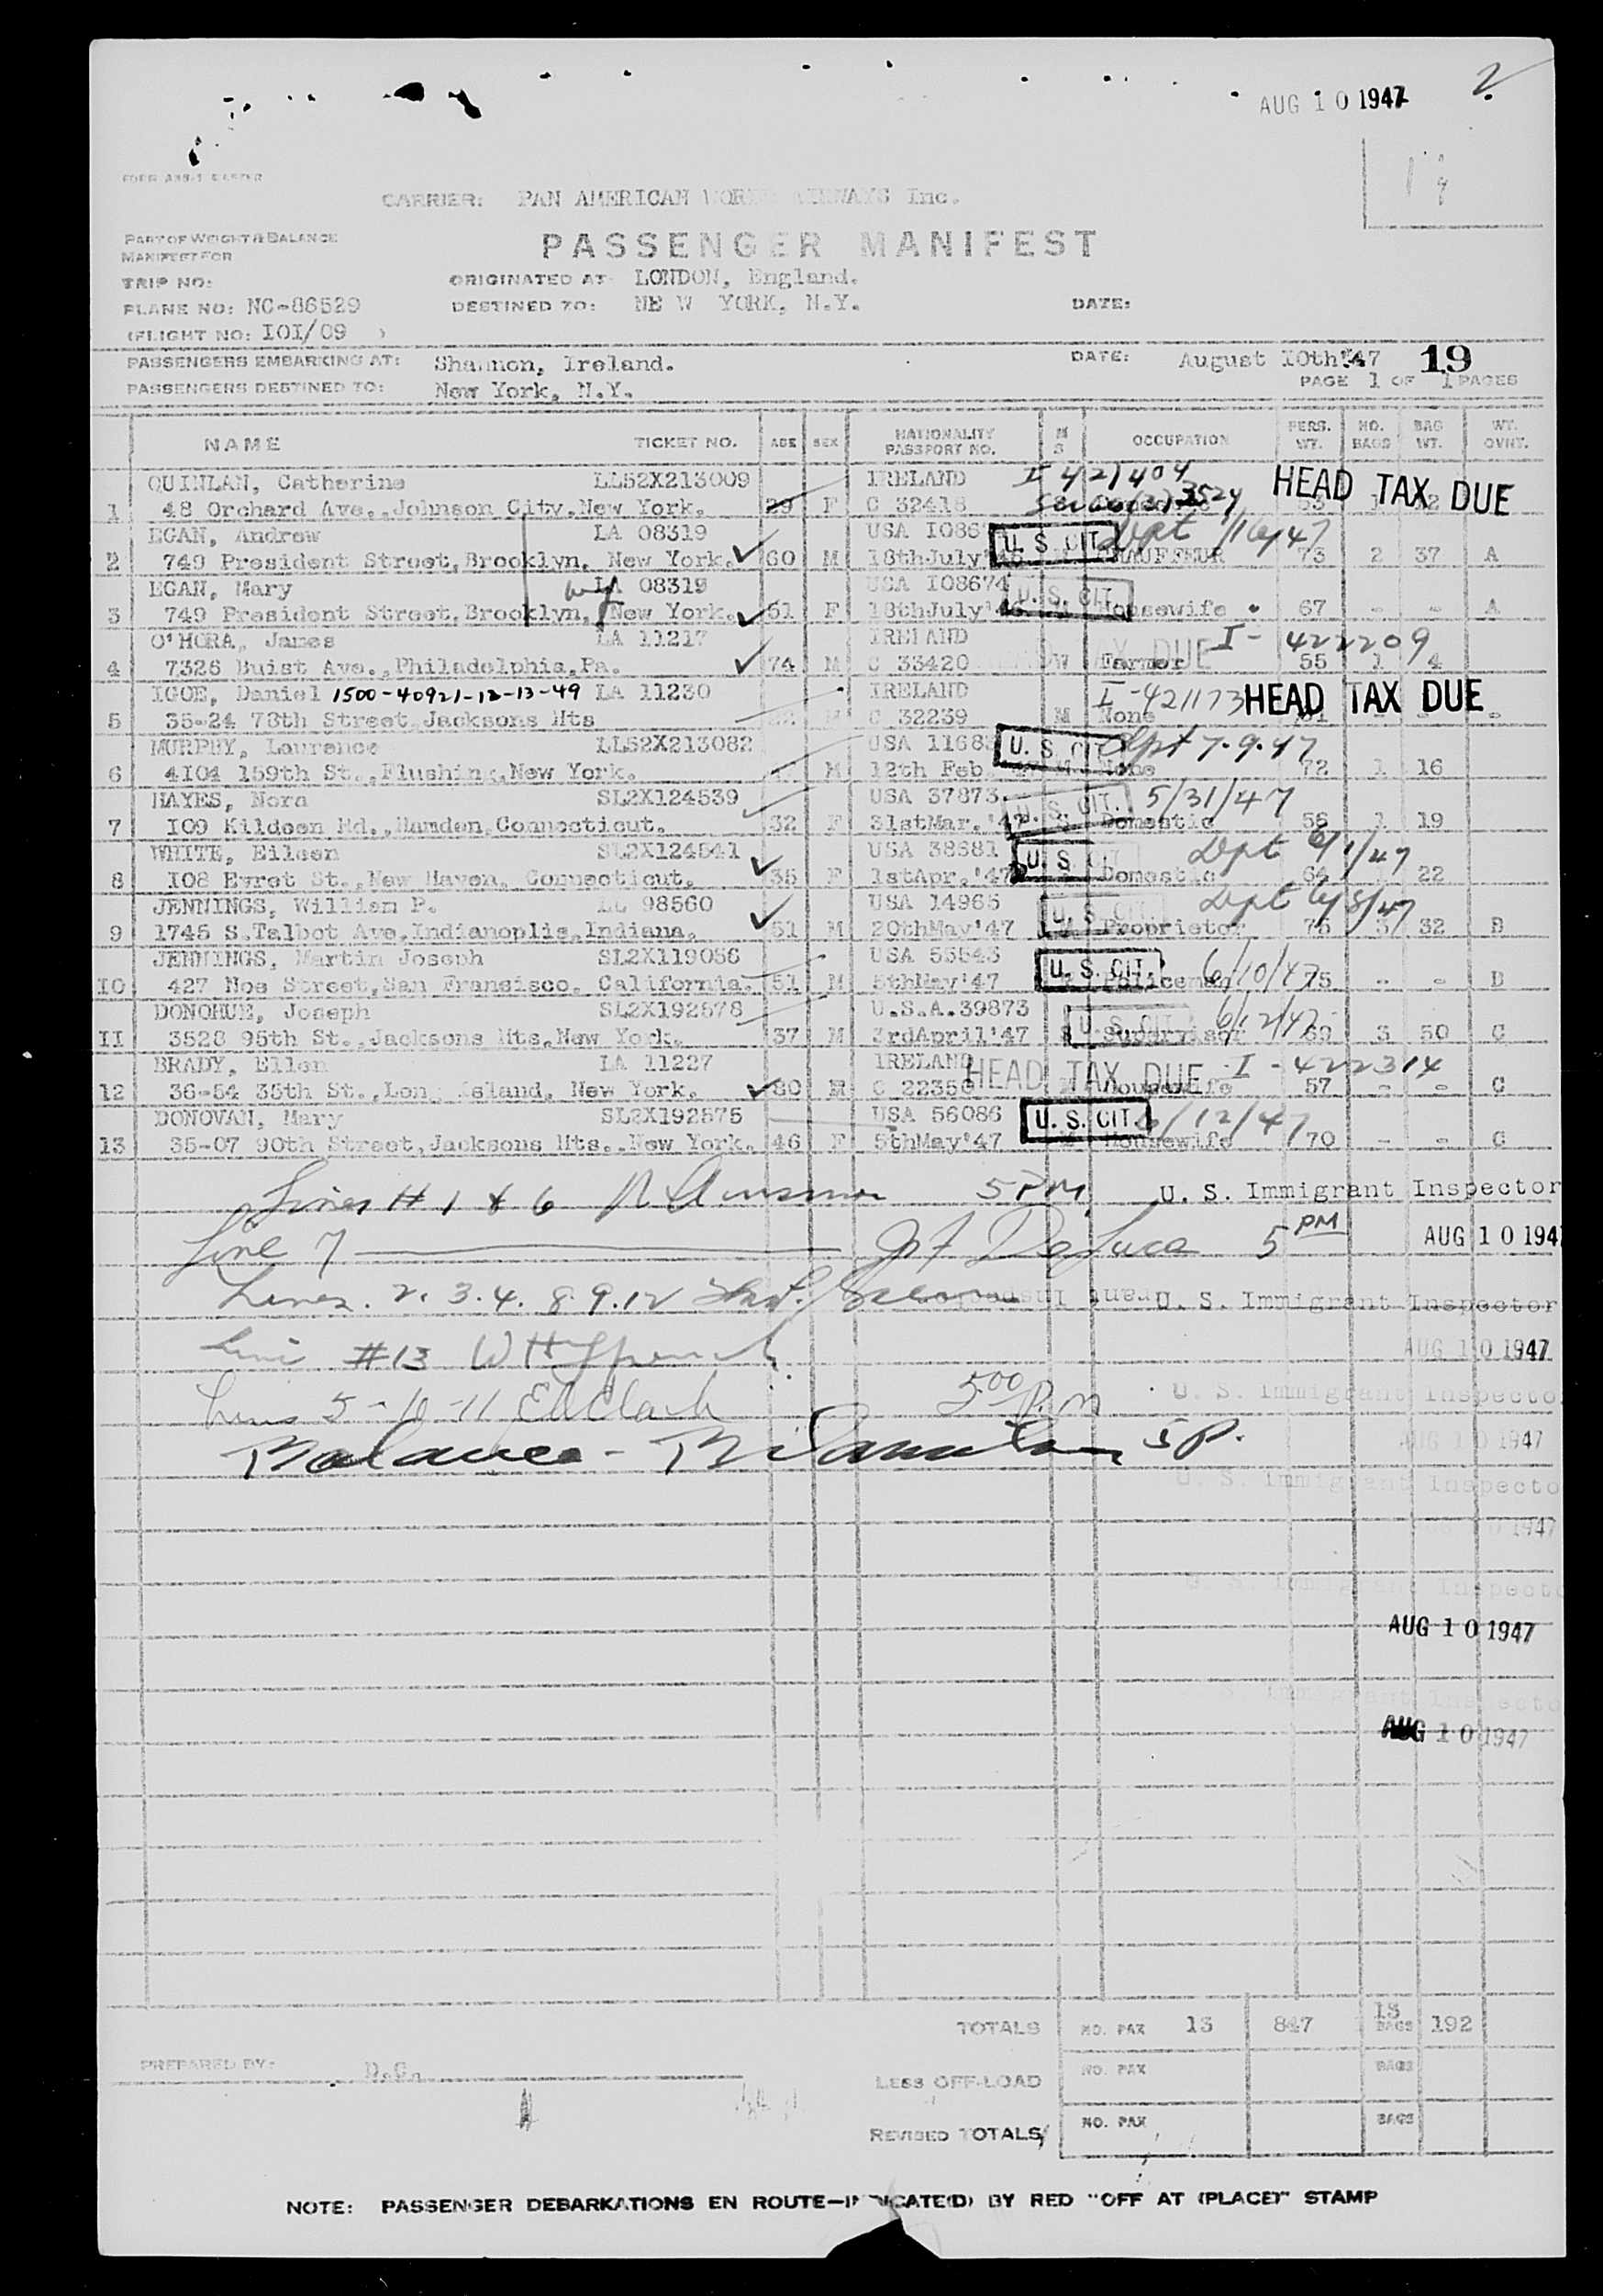 AUG 10 1947
2
CARRIER: PAN AMERICAN WORLD AIRWAYS Inc.
PART OF WEIGHT & BALANCE
MANIFEST FOR
PASSENGER MANIFEST
TRIP NO:
ORIGINATED AT LONDON, England.
PLANE NO: NC-86529
DESTINED TO: NE W YORK, N.Y.
DATE:
(FLIGHT NO: IOI/09 )
PASSENGERS EMBARKING AT: Shannon, Ireland.
DATE: August IOth'47 19
PASSENGERS DESTINED TO: New York, N.Y.
PAGE 1 OF 1 PAGES
NAME TICKET NO. AGE SEX NATIONALITY PASSPORT NO. M S OCCUPATION PERS. WT. NO. BAGS BAG WT. WT. OVNT.
QUINLAN, Catherine LL52X213009 IRELAND I 421404 HEAD TAX DUE
1 48 Orchard Ave.,Johnson City,New York. 29 F C 32418
EGAN, Andrew LA 08319 USA I086 U. S. CIT
2 749 President Street,Brooklyn, New York. 60 M 18thJuly'46 CHAUFFEUR 73 2 37 A
EGAN, Mary LA 08319 USA I08674 U. S. CIT.
3 749 President Street,Brooklyn, New York. 51 F 18thJuly'46 Housewife 67 - - A
O'HORA, James LA 11217 IRELAND I- 422209
4 7326 Buist Ave.,Philadelphia,Pa. 74 M C 33420 W Farmer 55 1 4
IGOE, Daniel 1500-40921-12-13-49 LA 11230 IRELAND I-421173 HEAD TAX DUE
5 35-24 78th Street Jacksons Hts C 32239 M None
MURPHY, Laurence LL52X213082 USA 1168 U. S. CIT Dpt 7.9.47
6 4I04 159th St.,Flushing,New York. M 12th Feb. None 72 1 16
HAYES, Nora SL2X124539 USA 37873 U. S. CIT. 5/31/47
7 IO9 Kildeen Rd.,Hamden,Connecticut. 32 F 31stMar.'47 S Domestic 58 1 19
WHITE, Eileen SL2X124541 USA 38681 U. S. CIT Dpt 6/1/47
8 IO8 Evret St.,New Haven, Connecticut. 35 F 1stApr.'47 Domestic 64 22
JENNINGS, William P. LL 98560 USA 14965 U. S. CIT. Dpt 6/8/47
9 1745 S.Talbot Ave,Indianoplis,Indiana. 51 M 20thMay'47 Proprietor 76 3 32 B
JENNINGS, Martin Joseph SL2X119056 USA 55543 U. S. CIT. 6/10/47
IO 427 Noe Street,San Fransisco. California. 51 M 5thMay'47 Policeman 75 - - B
DONOHUE, Joseph SL2X192578 U.S.A.39873 U. S. CIT. 6/2/47
II 3528 95th St.,Jacksons Hts,New York. 37 M 3rdApril'47 S Supervisor 69 3 50 C
BRADY, Ellen LA 11227 IRELAND HEAD TAX DUE I - 422314
12 36-54 35th St.,Long Island, New York. 80 M C 22350 Housewife 57 - - C
DONOVAN, Mary SL2X192575 USA 56086 U. S. CIT 6/12/47
13 35-07 90th Street,Jacksons Hts.,New York. 46 F 5thMay'47 Housewife 70 - - C
Lines # 1 & 6 5 PM U. S. Immigrant Inspector
Line 7 DeLuca 5 PM AUG 10 194
Lines. 2. 3. 4. 8. 9. 12 U. S. Immigrant Inspector
Line #13
AUG 10 1947
Lines 5-10-11 Ed Clark 5 00 P.M U. S. Immigrant Inspecto
Balance - 5 P.
AUG 10 1947
U. S. Immigrant Inspecto
1947
U. S. Immigrant Inspecto
AUG 10 1947
S. Immigrant Inspecto
AUG 10 1947
TOTALS NO. PAX 13 847 13 BAGS 192
PREPARED BY:
LESS OFF-LOAD NO. PAX BAGS
REVISED TOTALS NO. PAX BAGS
NOTE: PASSENGER DEBARKATIONS EN ROUTE—INDICATE(D) BY RED "OFF AT (PLACE)" STAMP